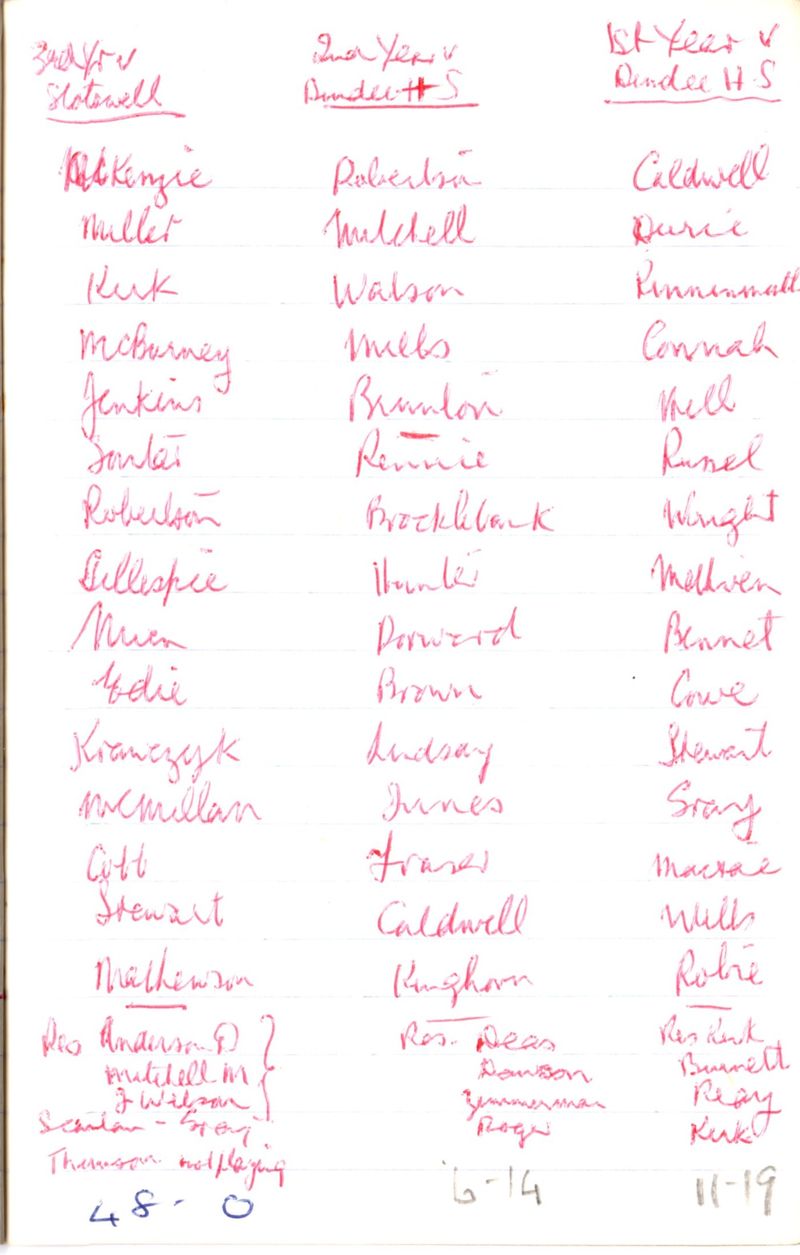 3rd Yr v
2nd Year v
1st Year v
Dundee H S
Dundee H S
McKenzie
Robertson
Caldwell
Miller
Mitchell
Durie
Kirk
Watson
McBurney
Mills
Connah
Jenkins
Brunton
Mell
Rennie
Russel
Robertson
Brocklebank
Wright
Gillespie
Hunter
Dorward
Bennet
Edie
Brown
Cowe
Krawczyk
Lindsay
Stewart
McMillan
Innes
Gray
Fraser
Macrae
Stewart
Caldwell
Wills
Mathewson
Kinghorn
Robie
Res Anderson D
Res. Deas
Res Kirk
Mitchell M
Dawson
Burnett
J Wilson
Zimmerman
Reay
Scanlan - Gray
Roger
Kirk
Thomson not playing
48 - 0
6-14
11-19